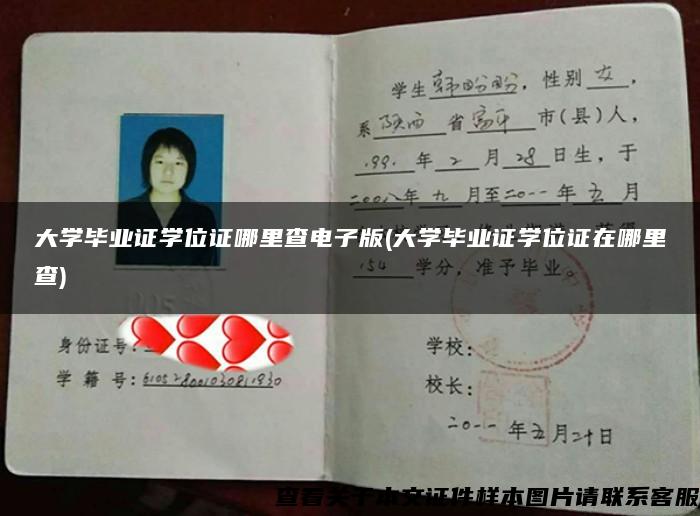 学生 韩盼盼，性别 女，
系 陕西 省 富平 市(县)人，
1991 年 2 月 28 日生，于
二00八年 九 月至二0一一年 五 月
大学毕业证学位证哪里查电子版(大学毕业证学位证在哪里
查)
154 学分，准予毕业。
身份证号：
学 籍 号：
学校：
校长：
二0一一 年 五 月 二十 日
查看关于本文证件样本图片请联系客服